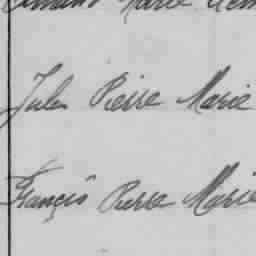 Marie
Jules Pierre Marie
François Pierre Marie